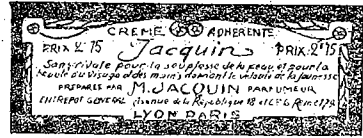 CREME ADHERENTE
PRIX 2F 75 Jacquin PRIX 2F 75
Sans rivale pour la souplesse de la peau et pour la
beauté du visage et des mains donnant le velouté de la jeunesse
PREPAREE PAR M. JACQUIN PARFUMEUR
ENTREPOT GENERAL Avenue de la République 18
LYON PARIS